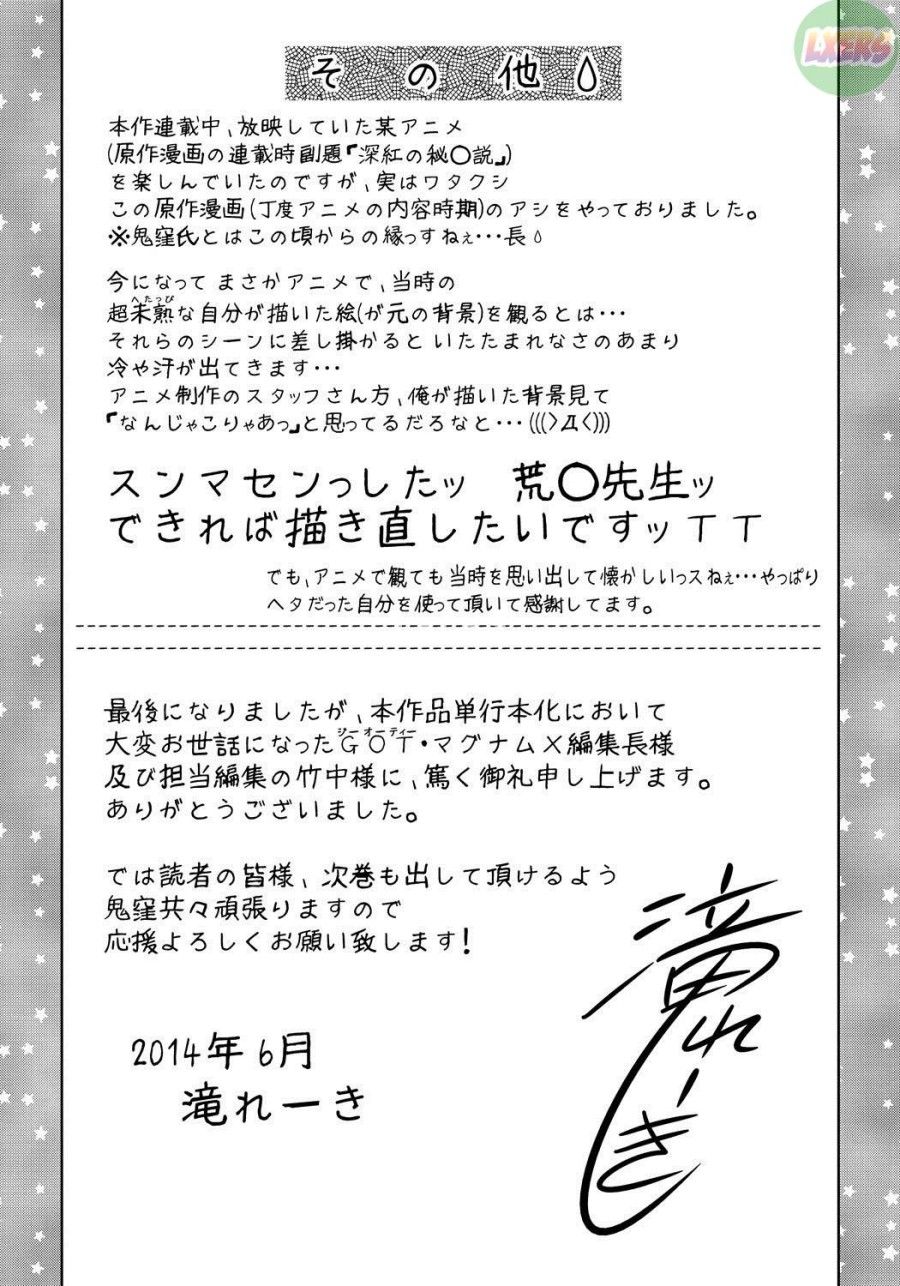 LXERS
その他
本作連載中、放映していた某アニメ
(原作漫画の連載時副題『深紅の秘〇説』)
を楽しんでいたのですが、実はワタクシ
この原作漫画(丁度アニメの内容時期)のアシをやっておりました。
※鬼窪氏とはこの頃からの縁っすねぇ・・・長
今になって まさかアニメで、当時の
超未熟な自分が描いた絵(が元の背景)を観るとは・・・
へたっぴ
それらのシーンに差し掛かると いたたまれなさのあまり
冷や汗が出てきます・・・
アニメ制作のスタッフさん方、俺が描いた背景見て
『なんじゃこりゃあっ』と思ってるだろなと・・・(((>Д<)))
スンマセンっしたッ 荒〇先生ッ
できれば描き直したいですッTT
でも、アニメで観ても当時を思い出して懐かしいっスねぇ・・・やっぱり
ヘタだった自分を使って頂いて感謝してます。
最後になりましたが、本作品単行本化において
大変お世話になったGOT・マグナムX編集長様
ジーオーティー
及び担当編集の竹中様に、篤く御礼申し上げます。
ありがとうございました。
では読者の皆様、次巻も出して頂けるよう
鬼窪共々頑張りますので
応援よろしくお願い致します!
滝れーき
2014年6月
滝れーき